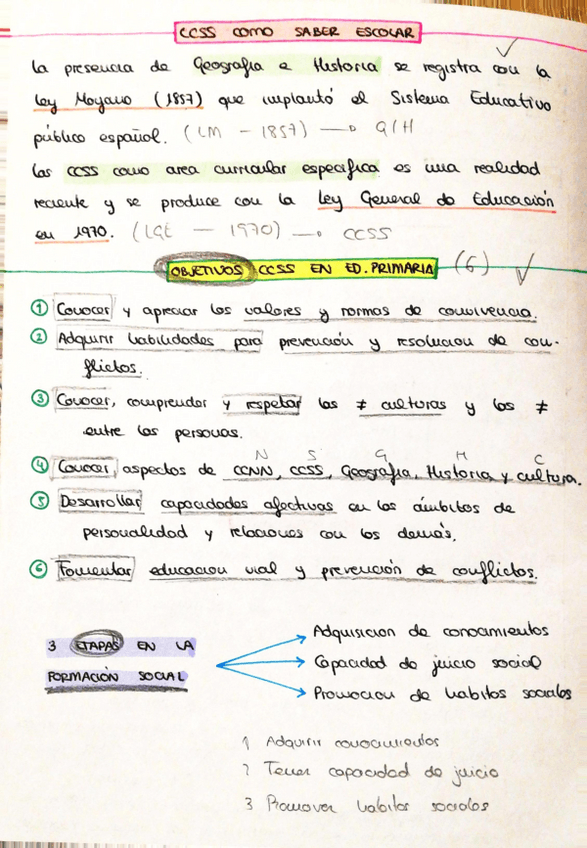 CCSS COMO SABER ESCOLAR
La presencia de Geografia e Historia se registra con la
Ley Moyano (1857) que implantó el Sistema Educativo
público español. (LM - 1857) → G/H
Las CCSS como area curricular especifica es una realidad
reciente y se produce con la Ley General de Educación
en 1970. (LGE - 1970) → CCSS
OBJETIVOS CCSS EN ED. PRIMARIA (6)
① Conocer y apreciar los valores y normas de convivencia.
② Adquirir habilidades para prevención y resolucion de con-
flictos.
③ Conocer, comprender y respetar las ≠ culturas y las ≠
entre las personas.
N S G H C
④ Conocer aspectos de CCNN, CCSS, Geografia, Historia y cultura.
⑤ Desarrollar capacidades afectivas en los ámbitos de
personalidad y relaciones con los demás.
⑥ Fomentar educacion vial y prevención de conflictos.
3 ETAPAS EN LA
FORMACIÓN SOCIAL
Adquisicion de conocimientos
Capacidad de juicio social
Promocion de habitos sociales
1 Adquirir conocimientos
2 Tener capacidad de juicio
3 Promover habitos sociales